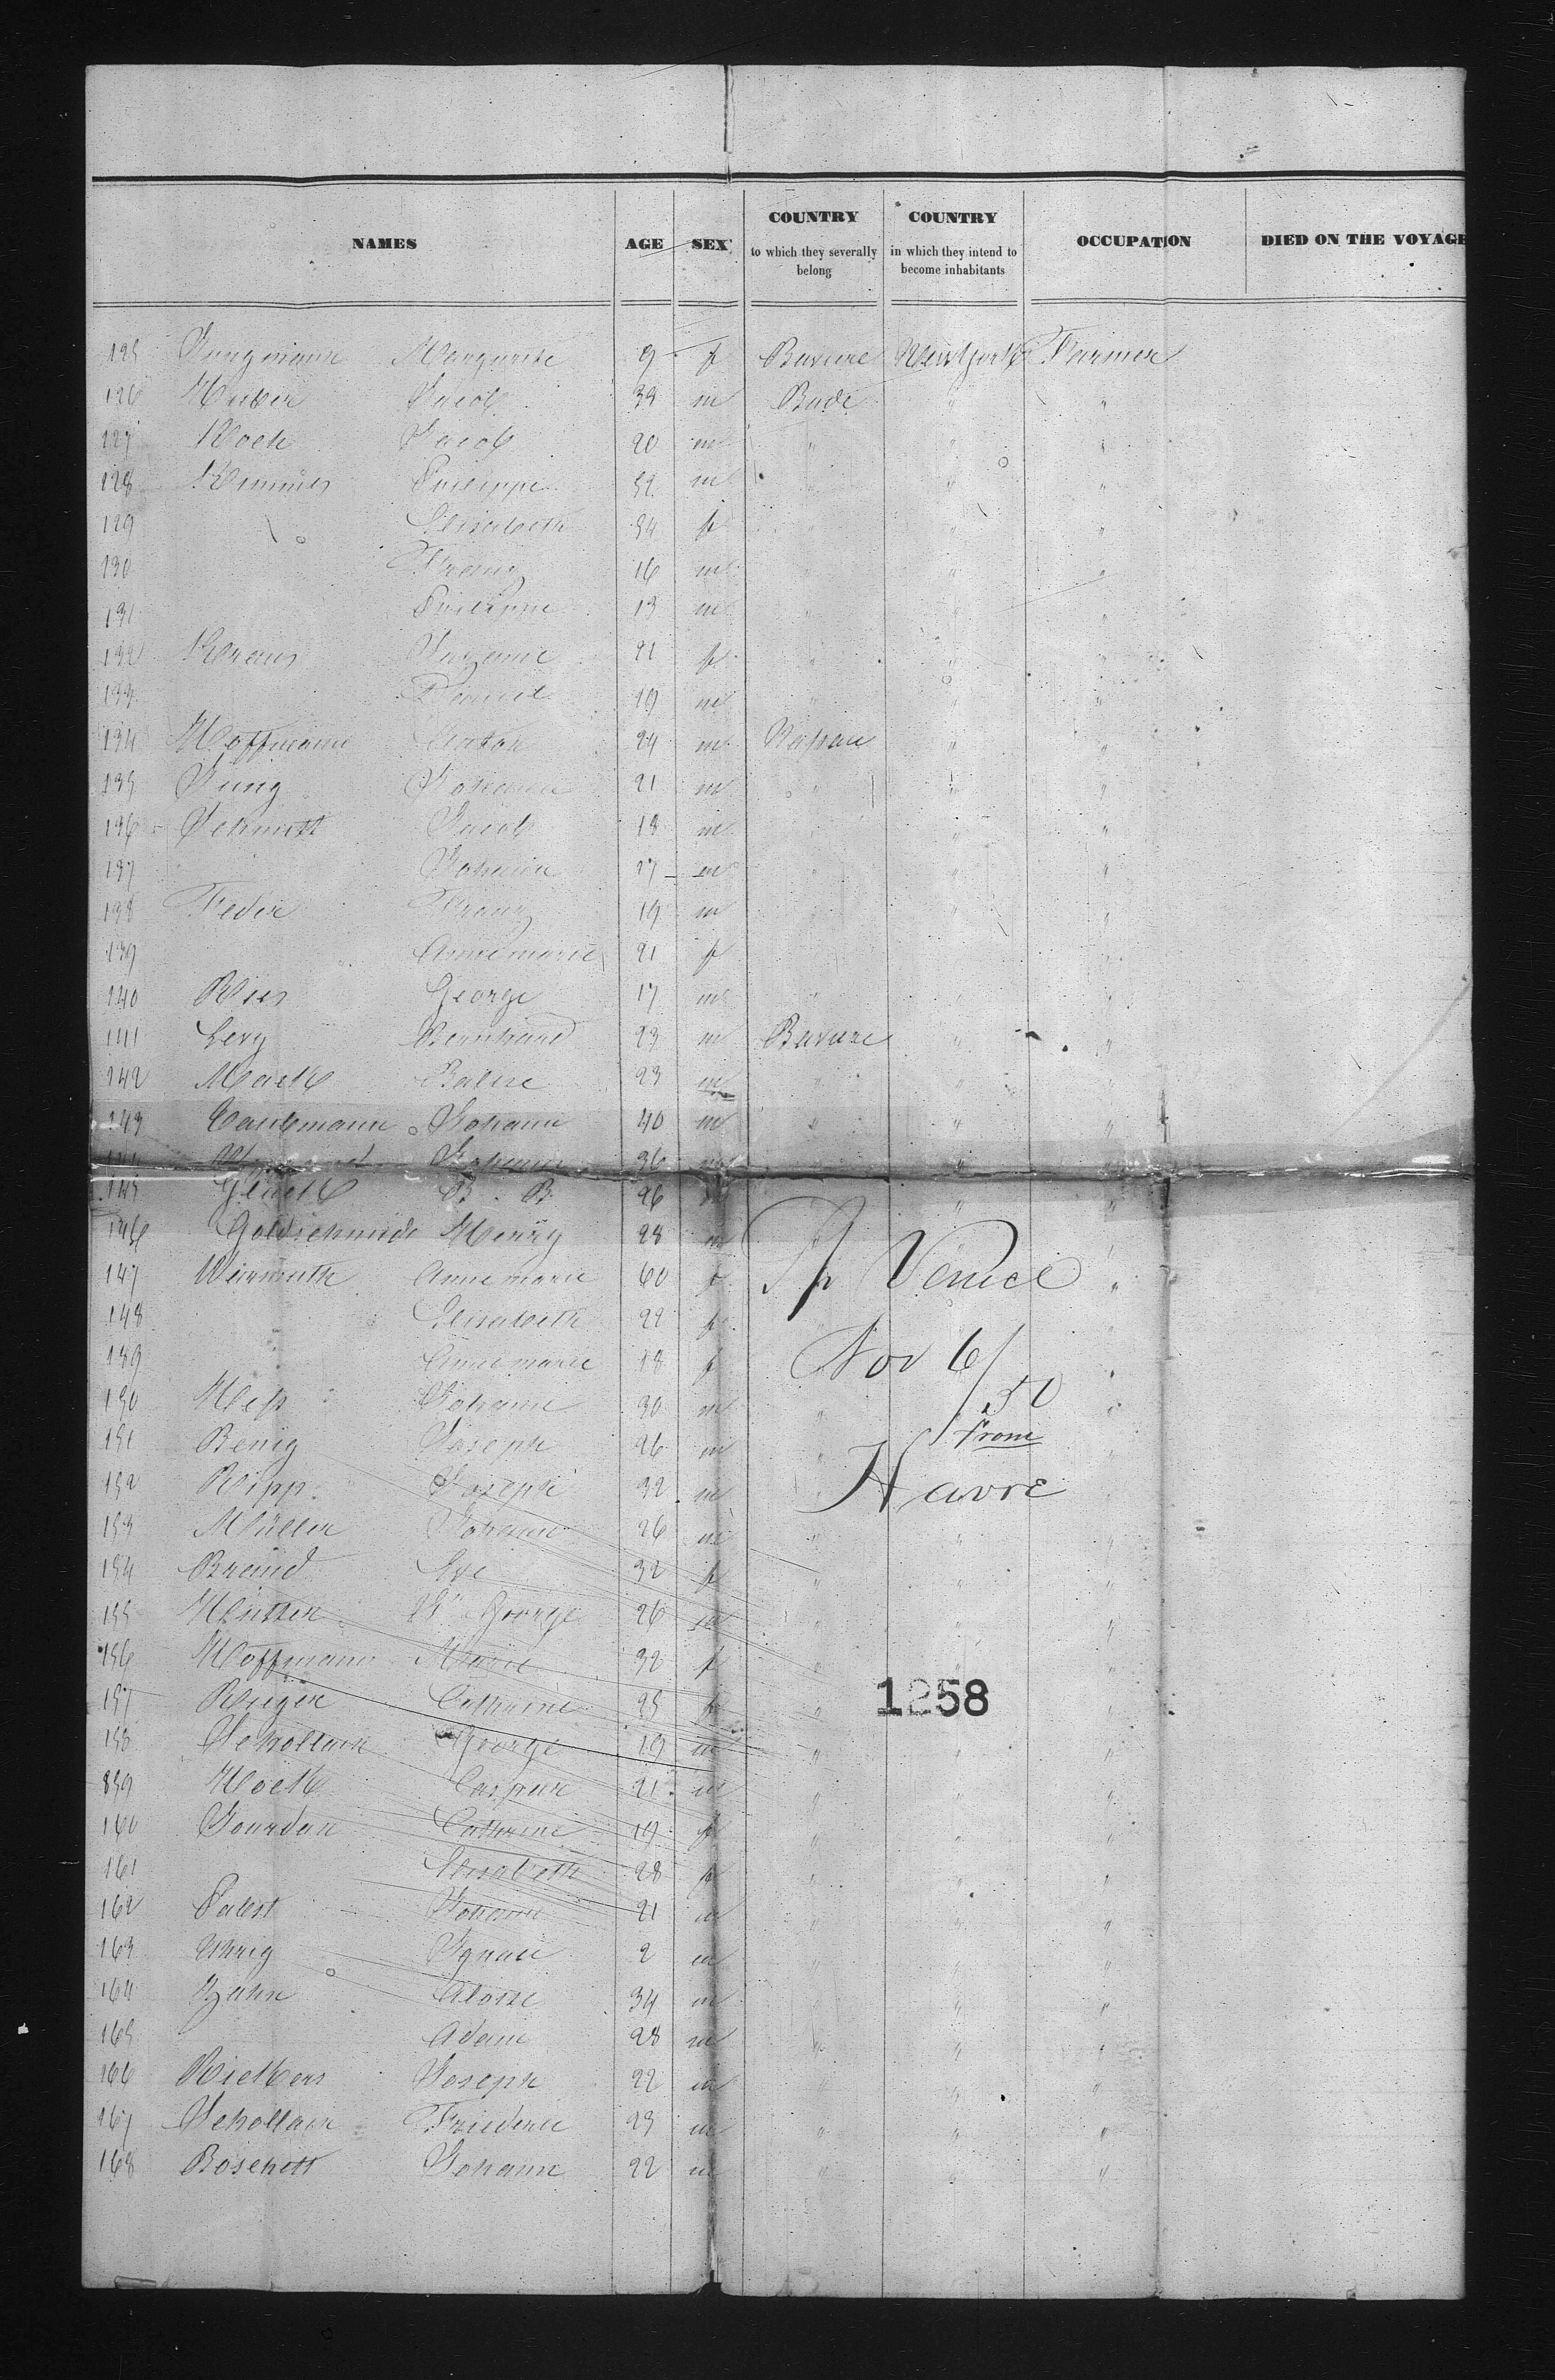 NAMES AGE SEX COUNTRY to which they severally belong COUNTRY in which they intend to become inhabitants OCCUPATION DIED ON THE VOYAGE
125 Jungmann Marguerite 9 f Baviere NewYork Farmer
126 Huber Jacob 38 m Bade " "
127 Koch Jacob 20 m " " "
128 Philippe 52 m " " "
129 Elisabeth 54 f " " "
130 Franz 16 m " " "
131 Philippe 13 m " " "
132 Kraus Suzanne 21 f " " "
133 19 m " " "
134 Hoffmann Anton 24 m Nassau " "
135 Jung Johann 21 m " " "
136 Schmitt Jacob 18 m " " "
137 Johann 17 m " " "
138 Feder Franz 19 m " " "
139 Annemarie 21 f " "
140 Ries George 17 m " " "
141 Levy Bernhard 23 m Baviere " "
142 23 m " " "
143 Johann 40 m " " "
144 Johann 36 m "
145 Glück B. B. 26 " "
146 Goldschmidt Henry 28 m "
147 Wermuth Annemarie 60 f "
148 Elisabeth 22 f "
149 Annemarie 18 f "
150 Hess Johann 30 m " "
151 Benig Joseph 26 m " "
152 Ripp Joseph 32 m " "
153 Müller Johann 26 m " " "
154 Brand Eve 32 f " " "
155 George 26 m " " "
156 Hoffmann Marie 32 f " " "
157 Rieger Catherine 25 f " "
158 George 19 m " " "
859 Hock Caspare 21 m " " "
160 Jourdan Catherine 19 f " " "
161 Elisabeth 28 f " " "
162 Pabst Johann 21 m " " "
163 Uhrig Ignace 2 m " " "
164 Zahn Aloise 34 m " " "
165 Adam 28 m " " "
166 Joseph 22 m " " "
167 23 m " " "
168 Johann 22 m " " "
Sp Venice
Nov 6/50
from
Havre
1258